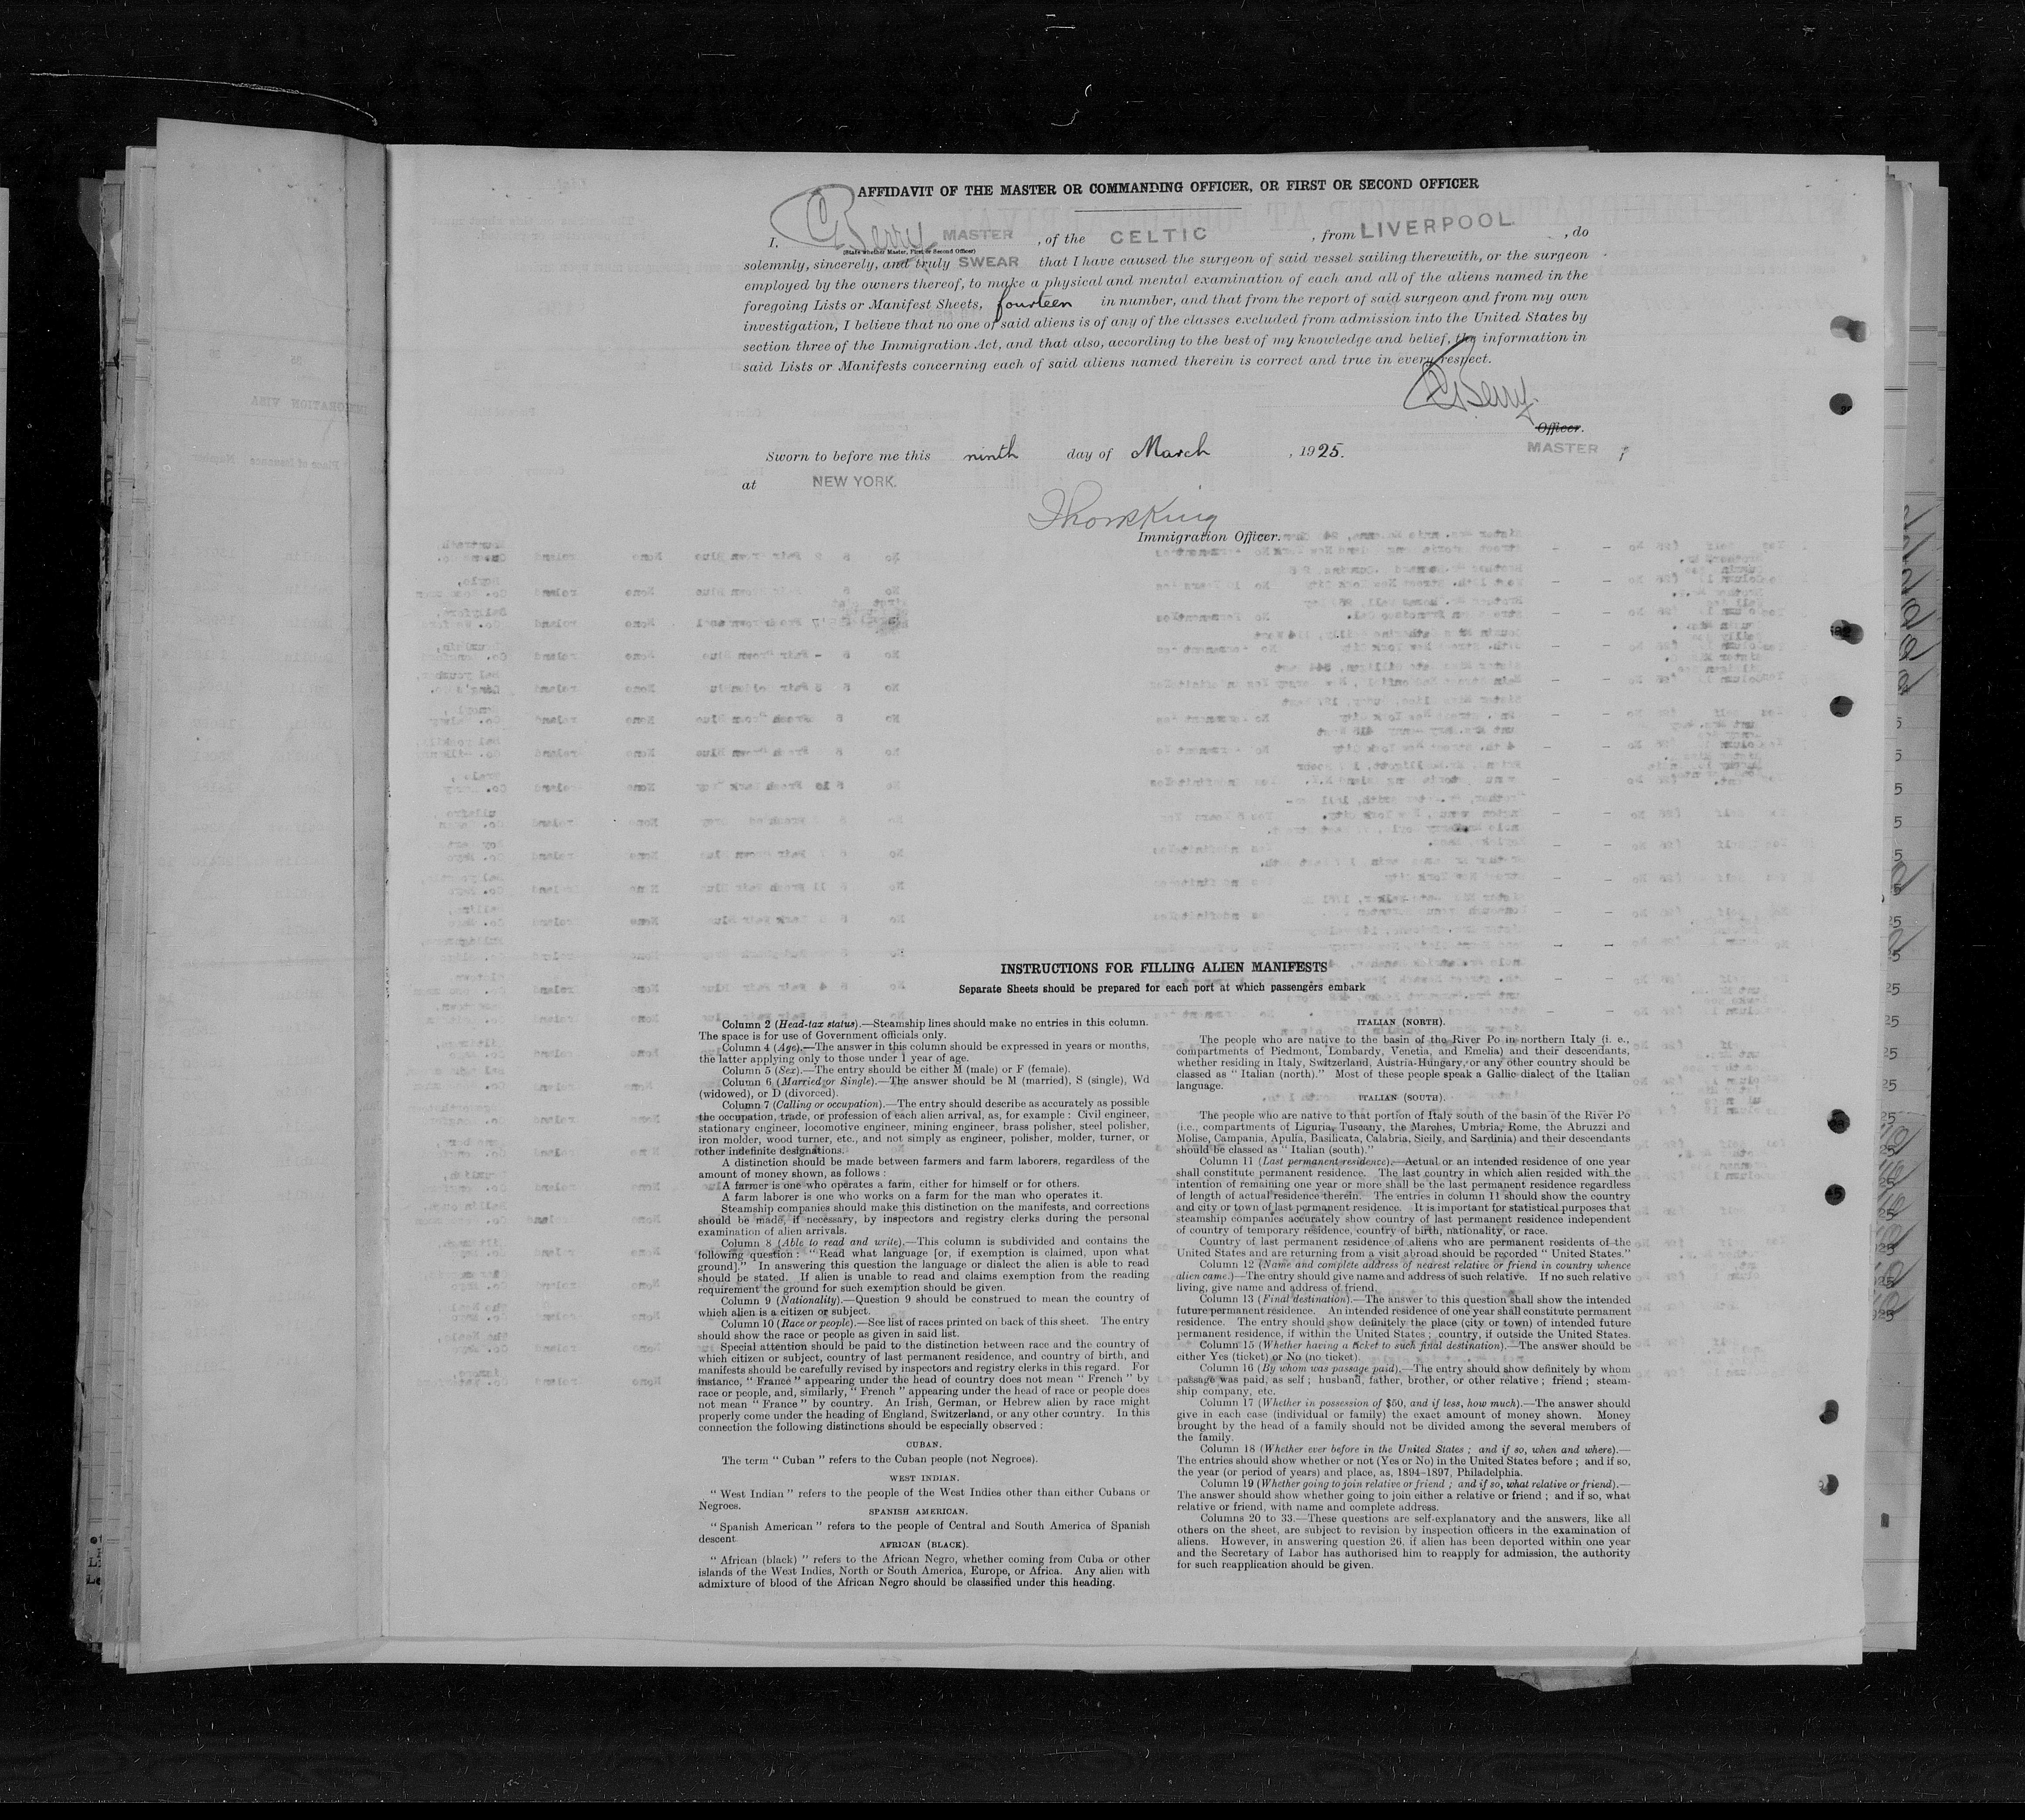 AFFIDAVIT OF THE MASTER OR COMMANDING OFFICER, OR FIRST OR SECOND OFFICER
I, Berry MASTER , of the CELTIC , from LIVERPOOL , do
(State whether Master, First or Second Officer)
solemnly, sincerely, and truly SWEAR that I have caused the surgeon of said vessel sailing therewith, or the surgeon
employed by the owners thereof, to make a physical and mental examination of each and all of the aliens named in the
foregoing Lists or Manifest Sheets, fourteen in number, and that from the report of said surgeon and from my own
investigation, I believe that no one of said aliens is of any of the classes excluded from admission into the United States by
section three of the Immigration Act, and that also, according to the best of my knowledge and belief, the information in
said Lists or Manifests concerning each of said aliens named therein is correct and true in every respect.
Berry
Officer.
MASTER
Sworn to before me this ninth day of March , 1925.
at NEW YORK.
Thos King
Immigration Officer.
INSTRUCTIONS FOR FILLING ALIEN MANIFESTS
Separate Sheets should be prepared for each port at which passengers embark
Column 2 (Head-tax status).—Steamship lines should make no entries in this column.
The space is for use of Government officials only.
Column 4 (Age).—The answer in this column should be expressed in years or months,
the latter applying only to those under 1 year of age.
Column 5 (Sex).—The entry should be either M (male) or F (female).
Column 6 (Married or Single).—The answer should be M (married), S (single), Wd
(widowed), or D (divorced).
Column 7 (Calling or occupation).—The entry should describe as accurately as possible
the occupation, trade, or profession of each alien arrival, as, for example : Civil engineer,
stationary engineer, locomotive engineer, mining engineer, brass polisher, steel polisher,
iron molder, wood turner, etc., and not simply as engineer, polisher, molder, turner, or
other indefinite designations.
A distinction should be made between farmers and farm laborers, regardless of the
amount of money shown, as follows :
A farmer is one who operates a farm, either for himself or for others.
A farm laborer is one who works on a farm for the man who operates it.
Steamship companies should make this distinction on the manifests, and corrections
should be made, if necessary, by inspectors and registry clerks during the personal
examination of alien arrivals.
Column 8 (Able to read and write).—This column is subdivided and contains the
following question : “ Read what language [or, if exemption is claimed, upon what
ground].” In answering this question the language or dialect the alien is able to read
should be stated. If alien is unable to read and claims exemption from the reading
requirement the ground for such exemption should be given.
Column 9 (Nationality).—Question 9 should be construed to mean the country of
which alien is a citizen or subject.
Column 10 (Race or people).—See list of races printed on back of this sheet. The entry
should show the race or people as given in said list.
Special attention should be paid to the distinction between race and the country of
which citizen or subject, country of last permanent residence, and country of birth, and
manifests should be carefully revised by inspectors and registry clerks in this regard. For
instance, “ France ” appearing under the head of country does not mean “ French ” by
race or people, and, similarly, “ French ” appearing under the head of race or people does
not mean “ France ” by country. An Irish, German, or Hebrew alien by race might
properly come under the heading of England, Switzerland, or any other country. In this
connection the following distinctions should be especially observed :
CUBAN.
The term “ Cuban ” refers to the Cuban people (not Negroes).
WEST INDIAN.
“ West Indian ” refers to the people of the West Indies other than either Cubans or
Negroes.
SPANISH AMERICAN.
“ Spanish American ” refers to the people of Central and South America of Spanish
descent.
AFRICAN (BLACK).
“ African (black) ” refers to the African Negro, whether coming from Cuba or other
islands of the West Indies, North or South America, Europe, or Africa. Any alien with
admixture of blood of the African Negro should be classified under this heading.
ITALIAN (NORTH).
The people who are native to the basin of the River Po in northern Italy (i. e.,
compartments of Piedmont, Lombardy, Venetia, and Emelia) and their descendants,
whether residing in Italy, Switzerland, Austria-Hungary, or any other country should be
classed as “ Italian (north).” Most of these people speak a Gallic dialect of the Italian
language.
ITALIAN (SOUTH).
The people who are native to that portion of Italy south of the basin of the River Po
(i.e., compartments of Liguria, Tuscany, the Marches, Umbria, Rome, the Abruzzi and
Molise, Campania, Apulia, Basilicata, Calabria, Sicily, and Sardinia) and their descendants
should be classed as “ Italian (south).”
Column 11 (Last permanent residence).—Actual or an intended residence of one year
shall constitute permanent residence. The last country in which alien resided with the
intention of remaining one year or more shall be the last permanent residence regardless
of length of actual residence therein. The entries in column 11 should show the country
and city or town of last permanent residence. It is important for statistical purposes that
steamship companies accurately show country of last permanent residence independent
of country of temporary residence, country of birth, nationality, or race.
Country of last permanent residence of aliens who are permanent residents of the
United States and are returning from a visit abroad should be recorded “ United States.”
Column 12 (Name and complete address of nearest relative or friend in country whence
alien came.)—The entry should give name and address of such relative. If no such relative
living, give name and address of friend.
Column 13 (Final destination).—The answer to this question shall show the intended
future permanent residence. An intended residence of one year shall constitute permanent
residence. The entry should show definitely the place (city or town) of intended future
permanent residence, if within the United States ; country, if outside the United States.
Column 15 (Whether having a ticket to such final destination).—The answer should be
either Yes (ticket) or No (no ticket).
Column 16 (By whom was passage paid).—The entry should show definitely by whom
passage was paid, as self ; husband, father, brother, or other relative ; friend ; steam-
ship company, etc.
Column 17 (Whether in possession of $50, and if less, how much).—The answer should
give in each case (individual or family) the exact amount of money shown. Money
brought by the head of a family should not be divided among the several members of
the family.
Column 18 (Whether ever before in the United States ; and if so, when and where).—
The entries should show whether or not (Yes or No) in the United States before ; and if so,
the year (or period of years) and place, as, 1894-1897, Philadelphia.
Column 19 (Whether going to join relative or friend ; and if so, what relative or friend).—
The answer should show whether going to join either a relative or friend ; and if so, what
relative or friend, with name and complete address.
Columns 20 to 33.—These questions are self-explanatory and the answers, like all
others on the sheet, are subject to revision by inspection officers in the examination of
aliens. However, in answering question 26, if alien has been deported within one year
and the Secretary of Labor has authorised him to reapply for admission, the authority
for such reapplication should be given.